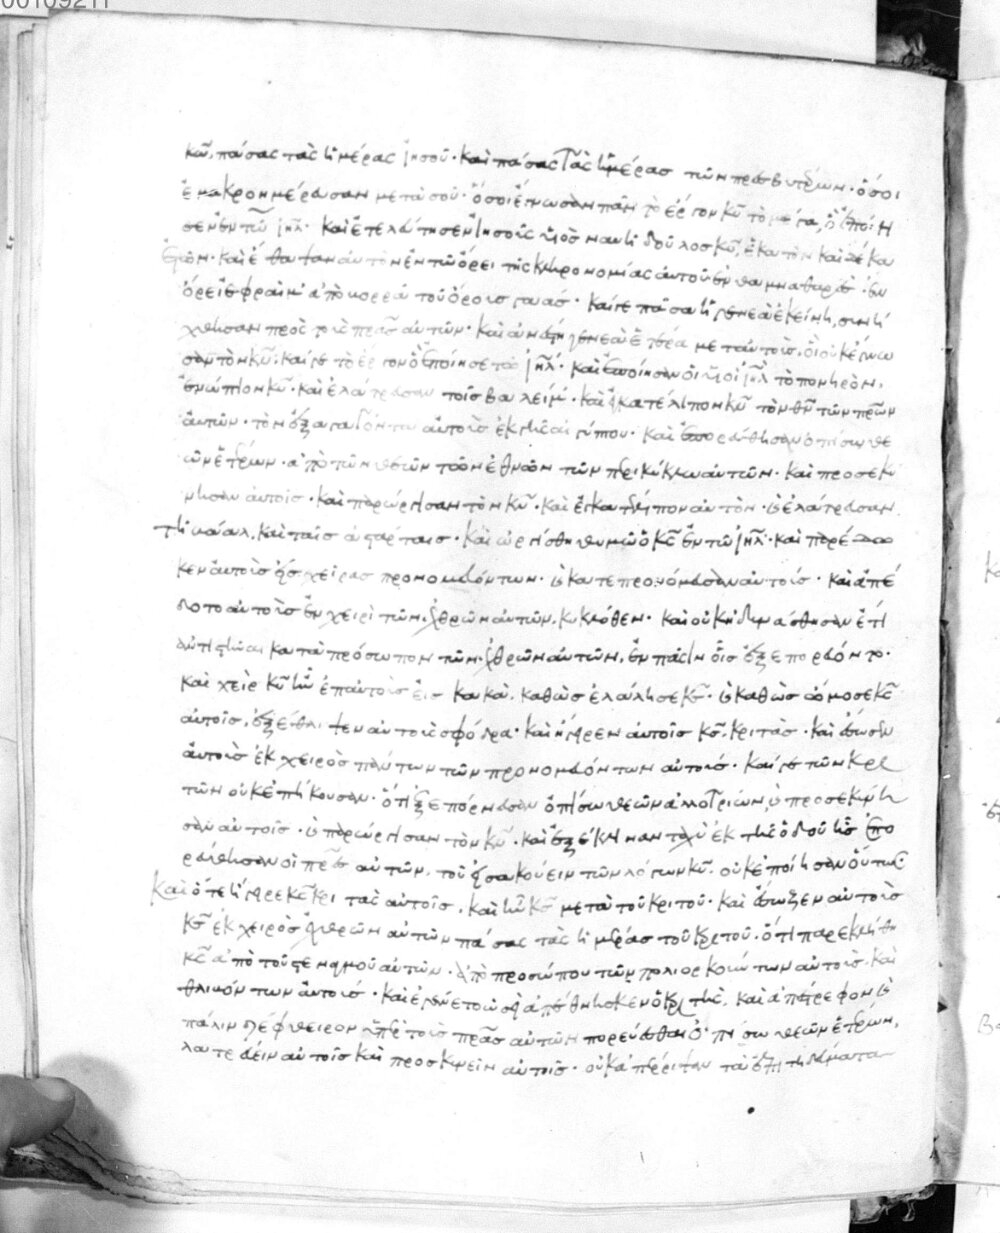 00109211
κῶ, πάσας τὰς ἡμέρας ἰησοῦ· καὶ πάσας τὰς ἡμέρας τῶν πρεσβυτέρων· ὅσοι
ἐμακροημέρευσαν μετὰ σοῦ· ὅσοι ἔγνωσαν πᾶν τὸ ἔργον κῦ τὸ μέγα, ὃ ἐποίη
σεν ἐν τῶ ιηλ· καὶ ἐτελεύτησεν ἰησοῦς υἱὸς ναυὴ δοῦλος κῦ, ἑκατὸν καὶ δέκα
ἐτῶν· καὶ ἔθαψαν αὐτὸν ἐν τῶ ὄρει τῆς κληρονομίας αὐτοῦ ἐν θαμναθαρὲς· ἐν
ὄρει ἐφραὶμ ἀπὸ βορρᾶ τοῦ ὄρους γαάς· καίγε πᾶσα ἡ γενεὰ ἐκείνη, συνή
χθησαν πρὸς τοὺς πρας αὐτῶν· καὶ ἀνέστη γενεὰ ἑτέρα μετ αὐτούς· οἳ οὐκ ἔγνω
σαν τὸν κν· καίγε τὸ ἔργον ὃ ἐποίησε τῶ ιηλ· καὶ ἐποίησαν οἱ υἱοὶ ιηλ τὸ πονηρὸν,
ἐνώπιον κῦ· καὶ ἐλάτρευσαν τοῖς βααλείμ· καὶ ἐγκατέλιπον κν τὸν θν τῶν πρων
αὐτῶν· τὸν ἐξαγαγόντα αὐτοὺς ἐκ γῆς αἰγύπτου· καὶ ἐπορεύθησαν ὀπίσω θε
ῶν ἑτέρων· ἀπὸ τῶν θεῶν τῶν ἐθνῶν τῶν περικύκλω αὐτῶν· καὶ προσεκύ
νησαν αὐτοῖς· καὶ παρώργησαν τὸν κν· καὶ ἐγκατέλιπον αὐτὸν· καὶ ἐλάτρευσαν
τῆ βάαλ, καὶ ταῖς ἀστάρταις· καὶ ὠργίσθη θυμῶ ὁ κς ἐν τῶ ιηλ· καὶ παρέδω
κεν αὐτοὺς εἰς χεῖρας προνομευόντων· καὶ κατεπρονόμευσαν αὐτούς· καὶ ἀπέ
δοτο αὐτοὺς ἐν χειρὶ τῶν ἐχθρῶν αὐτῶν, κυκλόθεν· καὶ οὐκ ἠδυνάσθησαν ἔτι
ἀντιστῆναι κατὰ πρόσωπον τῶν ἐχθρῶν αὐτῶν, ἐν πᾶσιν οἷς ἐξεπορεύοντο·
καὶ χεὶρ κῦ ἦν ἐπαὐτοὺς εἰς κακά, καθὼς ἐλάλησε κς· καὶ καθὼς ὤμοσε κς
αὐτοῖς, ἐξέθλιψεν αὐτοὺς σφόδρα· καὶ ἤγειρεν αὐτοῖς κς κριτάς· καὶ ἔσωσεν
αὐτοὺς ἐκ χειρὸς πάντων τῶν προνομευόντων αὐτούς· καίγε τῶν κρι
τῶν οὐκ ἐπήκουσαν· ὅτι ἐξεπόρνευσαν ὀπίσω θεῶν ἀλλοτρίων, καὶ προσεκύνη
σαν αὐτοῖς· καὶ παρώργησαν τὸν κν· καὶ ἐξέκλιναν ταχὺ ἐκ τῆς ὁδοῦ ἧς ἐπο
ρεύθησαν οἱ πρες αὐτῶν, τοῦ εἰσακούειν τῶν λόγων κῦ· οὐκ ἐποίησαν οὕτως
καὶ ὅτε ἤγειρε κς κριτὰς αὐτοῖς, καὶ ἦν κς μετὰ τοῦ κριτοῦ· καὶ ἔσωζεν αὐτοὺς
κς ἐκ χειρὸς ἐχθρῶν αὐτῶν πάσας τὰς ἡμέρας τοῦ κριτοῦ· ὅτι παρεκλήθη
κς ἀπὸ τοῦ στεναγμοῦ αὐτῶν· ἀπὸ προσώπου τῶν πολιορκούντων αὐτοὺς· καὶ
θλιβόντων αὐτούς· καὶ ἐγένετο ὡς ἀπέθνησκεν ὁ κριτὴς, καὶ ἀπέστρεφον καὶ
πάλιν διέφθειρον ὑπὲρ τοὺς πρας αὐτῶν πορεύεσθαι ὀπίσω θεῶν ἑτέρων,
λατρεύειν αὐτοῖς καὶ προσκυνεῖν αὐτοῖς· οὐκ ἀπέρριψαν τὰ ἐπιτηδεύματα